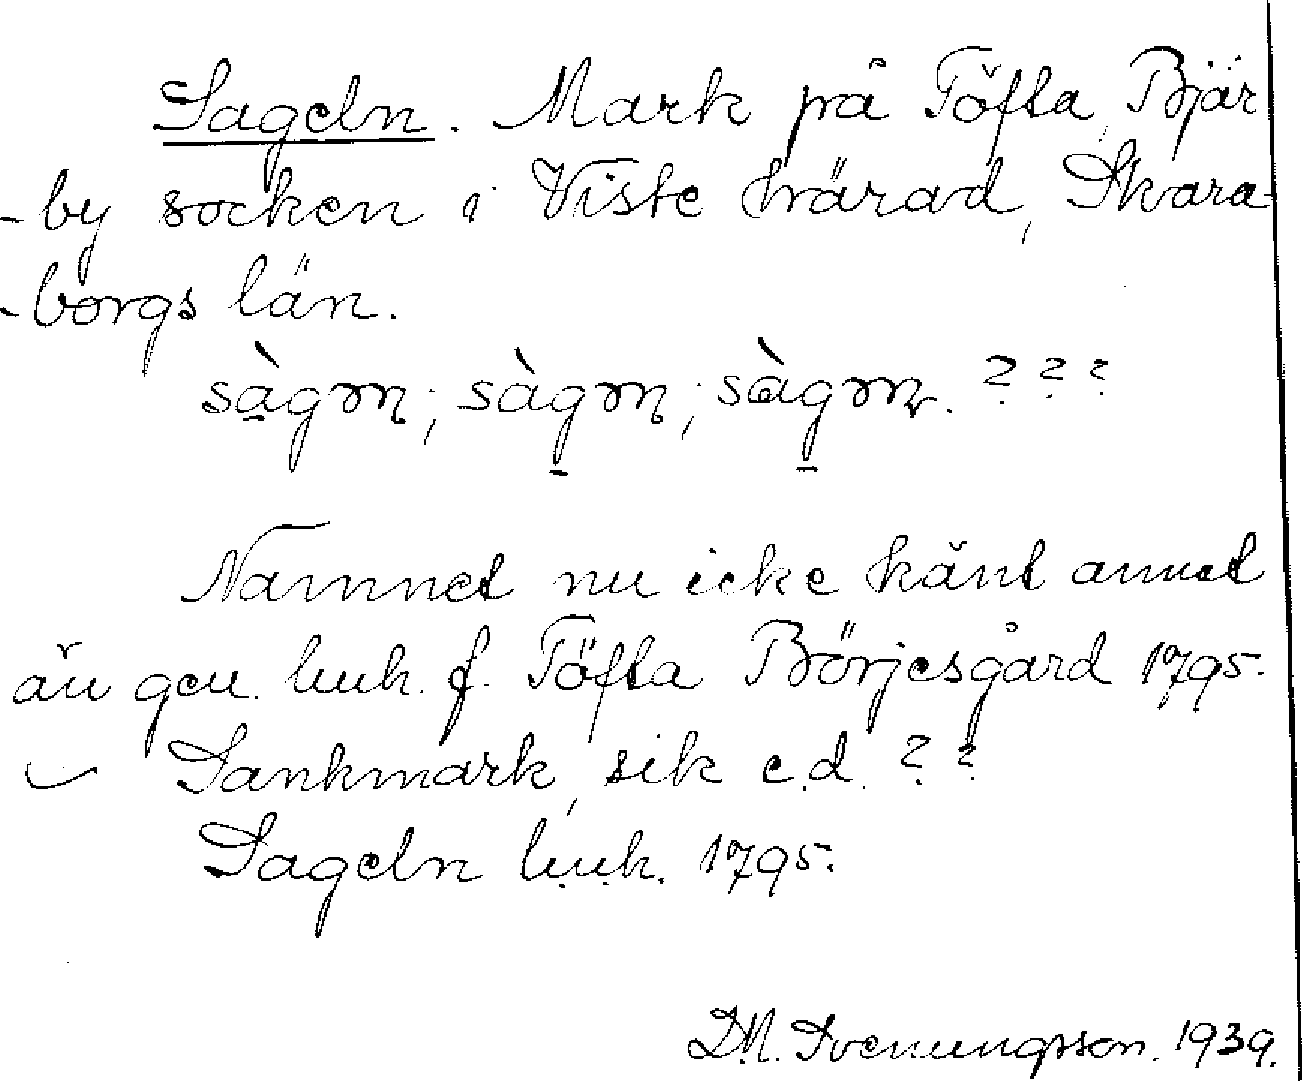 Sageln. Mark på Töfta, Bjär
-by socken i Viste härad, Skara-
-borgs län.
; ; . ? ? ?
Namnet nu icke känt annat
än gen. luh. f. Töfta Börjesgård 1795.
Sankmark, sik e.d. ? ?
Sageln luh. 1795.
D.N. Svenungsson. 1939.